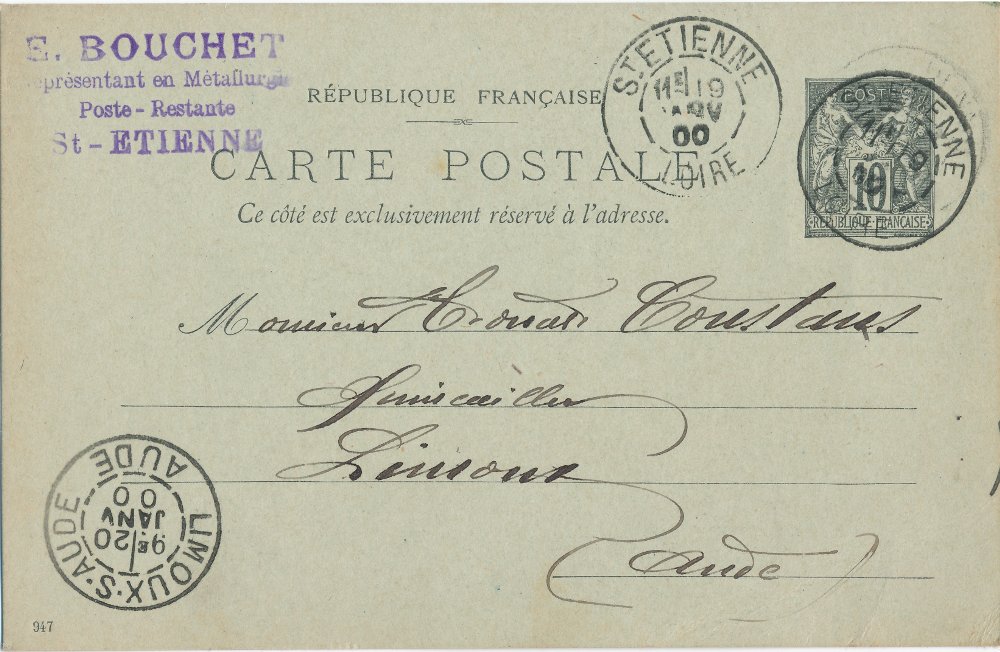 E. BOUCHET
Représentant en Métallurgie
Poste-Restante
St-ETIENNE
RÉPUBLIQUE FRANÇAISE
CARTE POSTALE
Ce côté est exclusivement réservé à l'adresse.
ST ETIENNE
11E 19
JANV
00
LOIRE
POSTES
10
REPUBLIQUE FRANÇAISE
ETIENNE
Monsieur Constans
Quincailler
Limoux
(Aude)
LIMOUX-S-AUDE
9E 20
JANV
00
AUDE
947